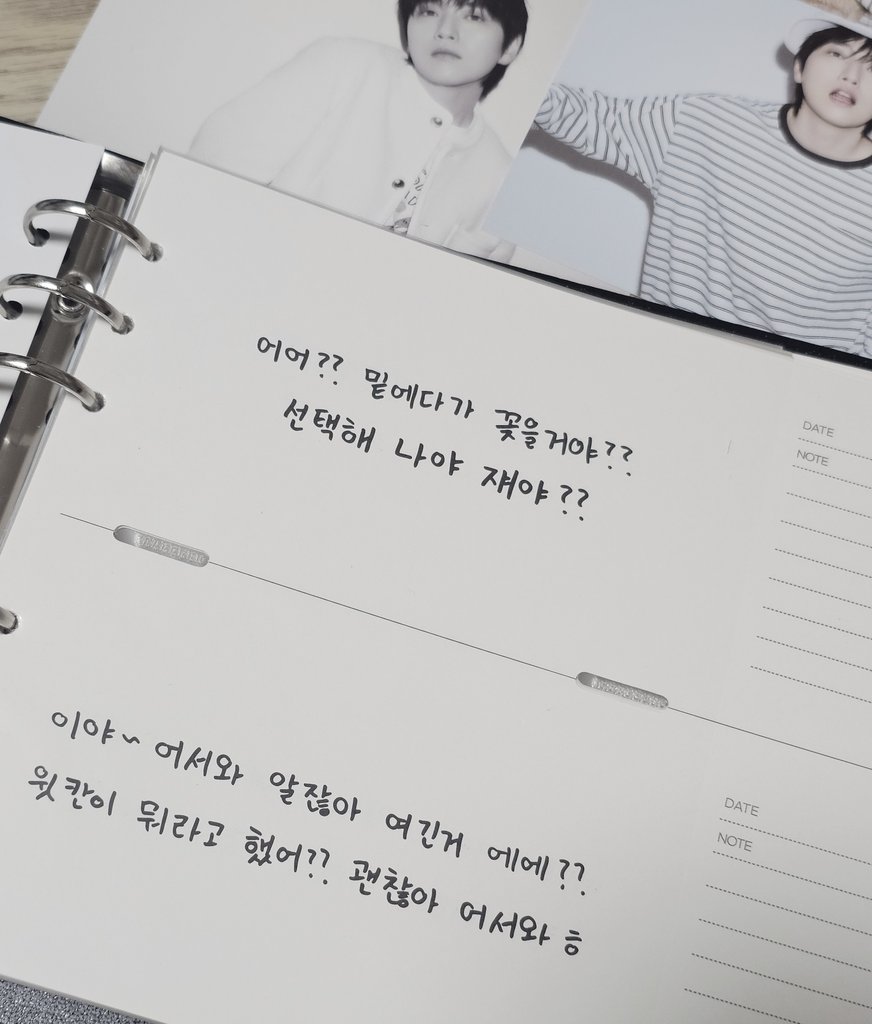 어어?? 밑에다가 꽂을거야??
선택해 나야 쟤야??
DATE
NOTE
이야~ 어서와 알잖아 여긴거 에에??
윗칸이 뭐라고 했어?? 괜찮아 어서와 ㅎ
DATE
NOTE